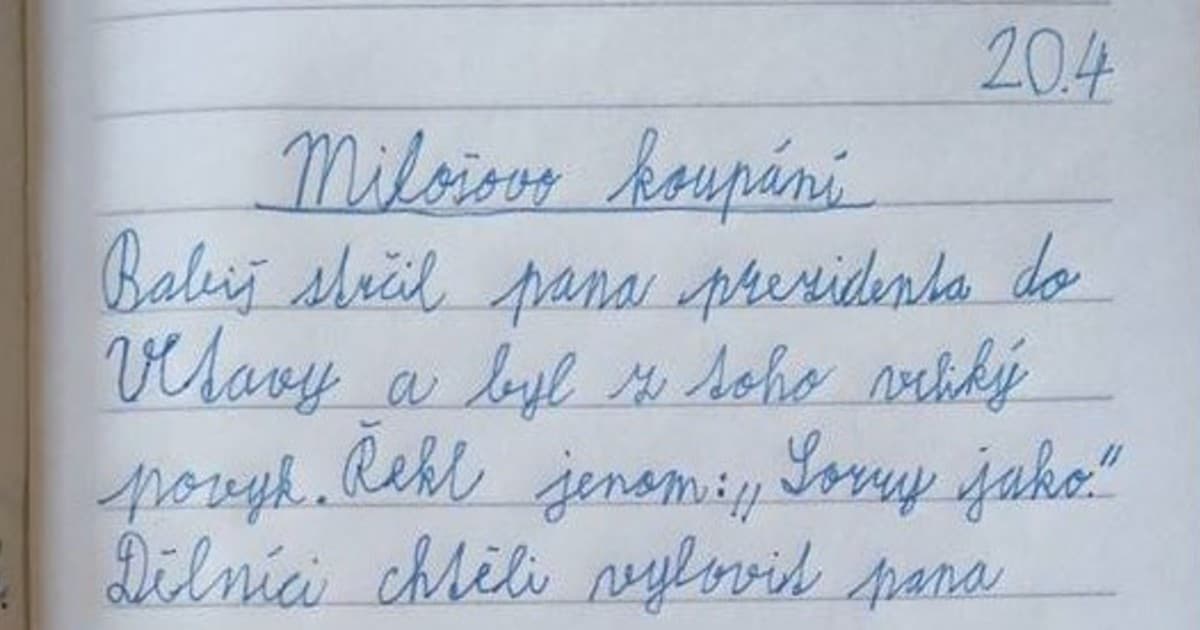 20.4
Milošovo koupání
Babiš strčil pana prezidenta do
Vltavy a byl z toho veliký
povyk. Řekl jenom: „Sorry jako."
Dělníci chtěli vylovit pana